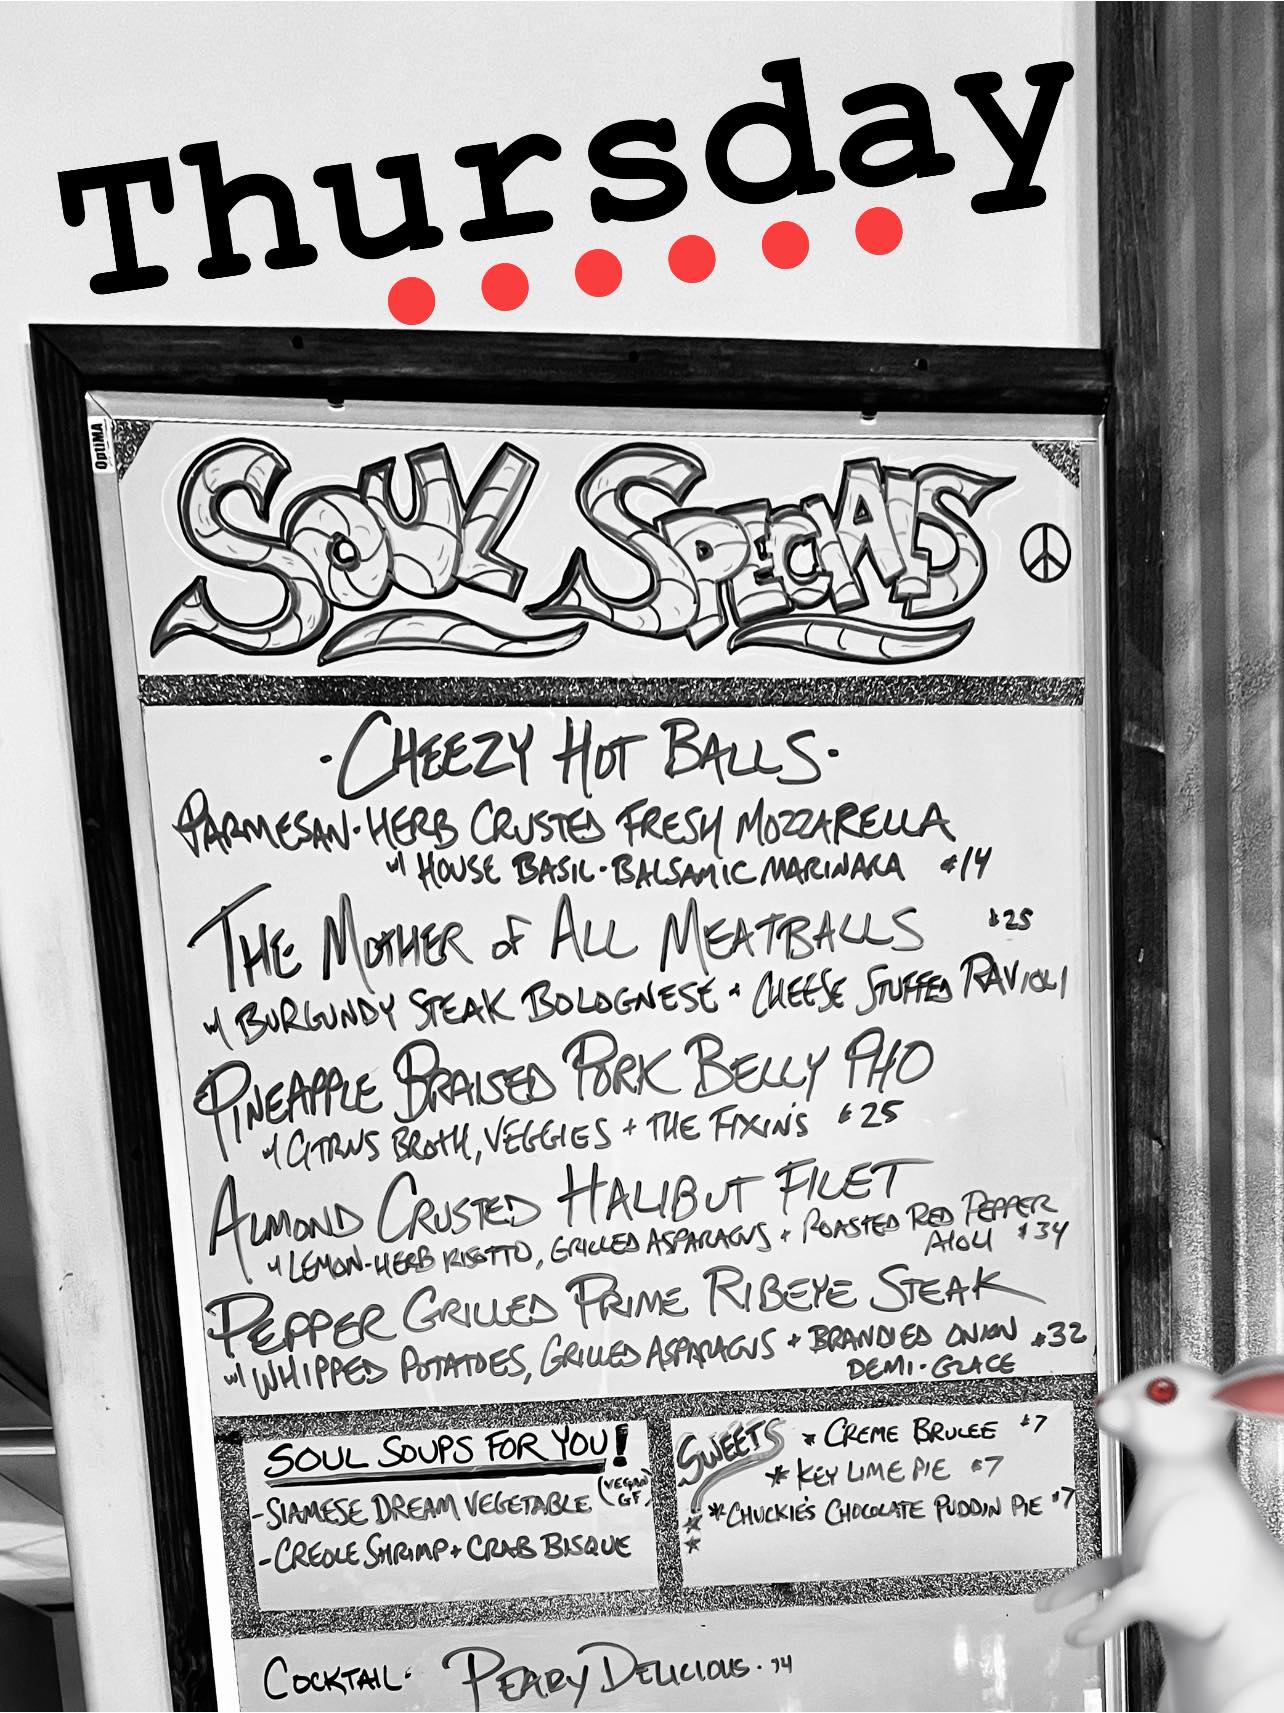 Thursday
OptiMA
SOUL SPECIALS
·CHEEZY HOT BALLS·
PARMESAN·HERB CRUSTED FRESH MOZZARELLA
w/ HOUSE BASIL·BALSAMIC MARINARA $14
THE MOTHER OF ALL MEATBALLS $25
w/ BURGUNDY STEAK BOLOGNESE + CHEESE STUFFED RAVIOLI
PINEAPPLE BRAISED PORK BELLY PHO
w/ CITRUS BROTH, VEGGIES + THE FIXINS $25
ALMOND CRUSTED HALIBUT FILET
w/ LEMON-HERB RISOTTO, GRILLED ASPARAGUS + ROASTED RED PEPPER
AIOLI $34
PEPPER GRILLED PRIME RIBEYE STEAK
w/ WHIPPED POTATOES, GRILLED ASPARAGUS + BRANDIED ONION $32
DEMI·GLACE
SOUL SOUPS FOR YOU!
-SIAMESE DREAM VEGETABLE (VEGAN
GF)
-CREOLE SHRIMP + CRAB BISQUE
SWEETS * CREME BRULEE $7
* KEY LIME PIE $7
* CHUCKIE'S CHOCOLATE PUDDIN PIE $7
COCKTAIL· PEARY DELICIOUS· 14